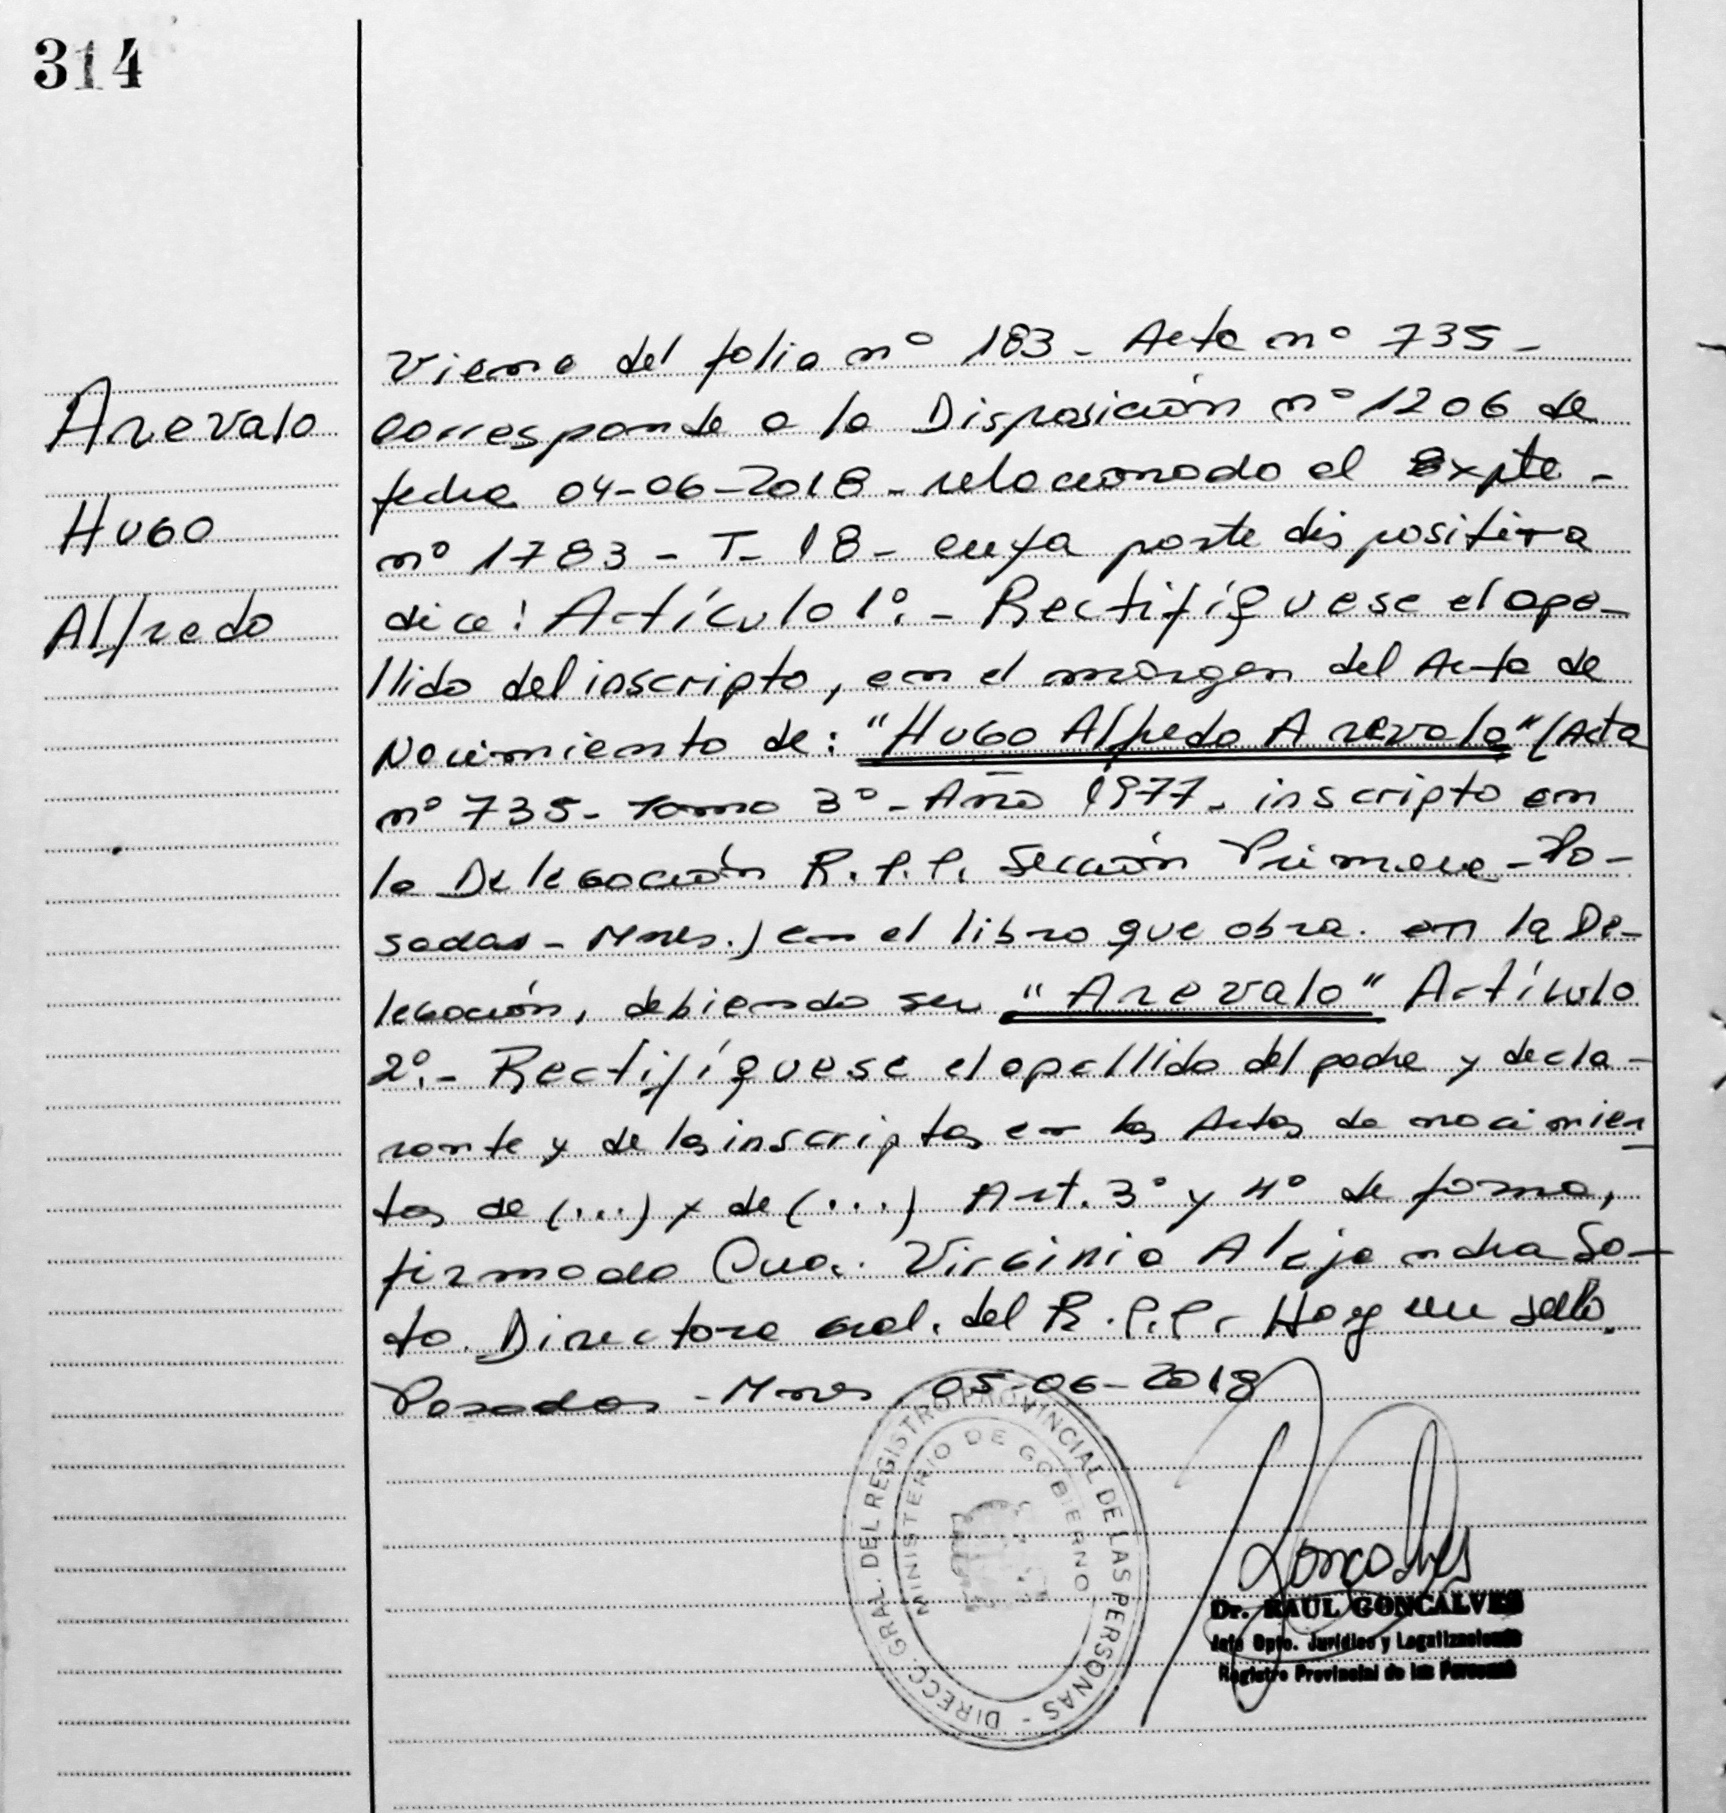 314
Arevalo
Hugo
Alfredo
Viene del folio nº 183 - Acta nº 735 -
corresponde a la Disposición nº 1206 de
fecha 04-06-2018 - relacionado al Expte -
nº 1783 - T - 18 - cuya parte dispositiva
dice: Artículo 1º. - Rectifíquese el ape-
llido del inscripto, en el margen del Acta de
Nacimiento de: "Hugo Alfredo Arevalo" (Acta
nº 735 - Tomo 3º - Año 1977 - inscripto en
la Delegación R.P.P. Sección Primera - Po-
sadas - Mnes.) en el libro que obra. en la De-
legación, debiendo ser "Arevalo" Artículo
2º. - Rectifíquese el apellido del padre y decla-
rante y de los inscriptos en las Actas de nacimien
tos de (...) y de (...) Art. 3º y 4º de forma,
firmado Virginia Alejandra So-
to. Directora Gral. del R.P.P. Hay un sello.
Posadas - Mnes 05-06-2018
DIRECC. GRAL. DEL REGISTRO PROVINCIAL DE LAS PERSONAS -
MINISTERIO DE GOBIERNO
Goncalves
Dr. RAUL GONCALVES
Jefe Dpto. Jurídico y Legalizaciones
Registro Provincial de las Personas